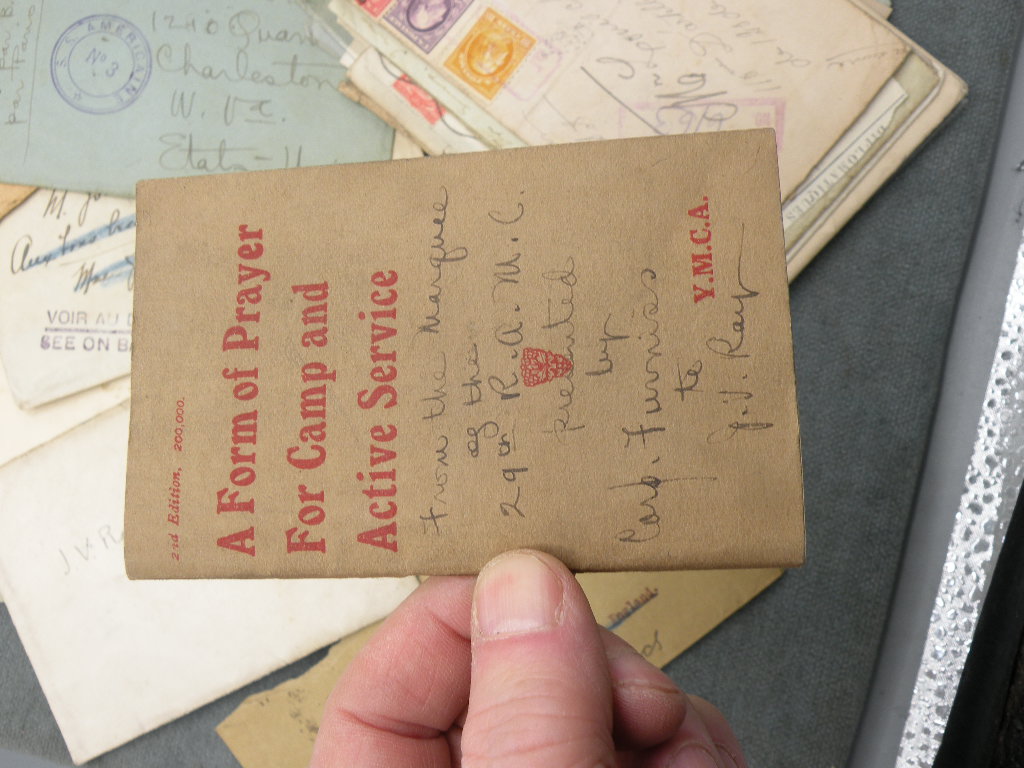 2nd Edition, 200,000.
A Form of Prayer
For Camp and
Active Service
from the Marquee
of the
29th R.A.M.C.
presented
by
Corp. Furniss
to
J. J. Ray
Y.M.C.A.
S. S. AMERICAN
No 3
1210 Quar
Charleston
W. Va.
Etats-U
par
M.
VOIR AU D
SEE ON BA
J. V. R